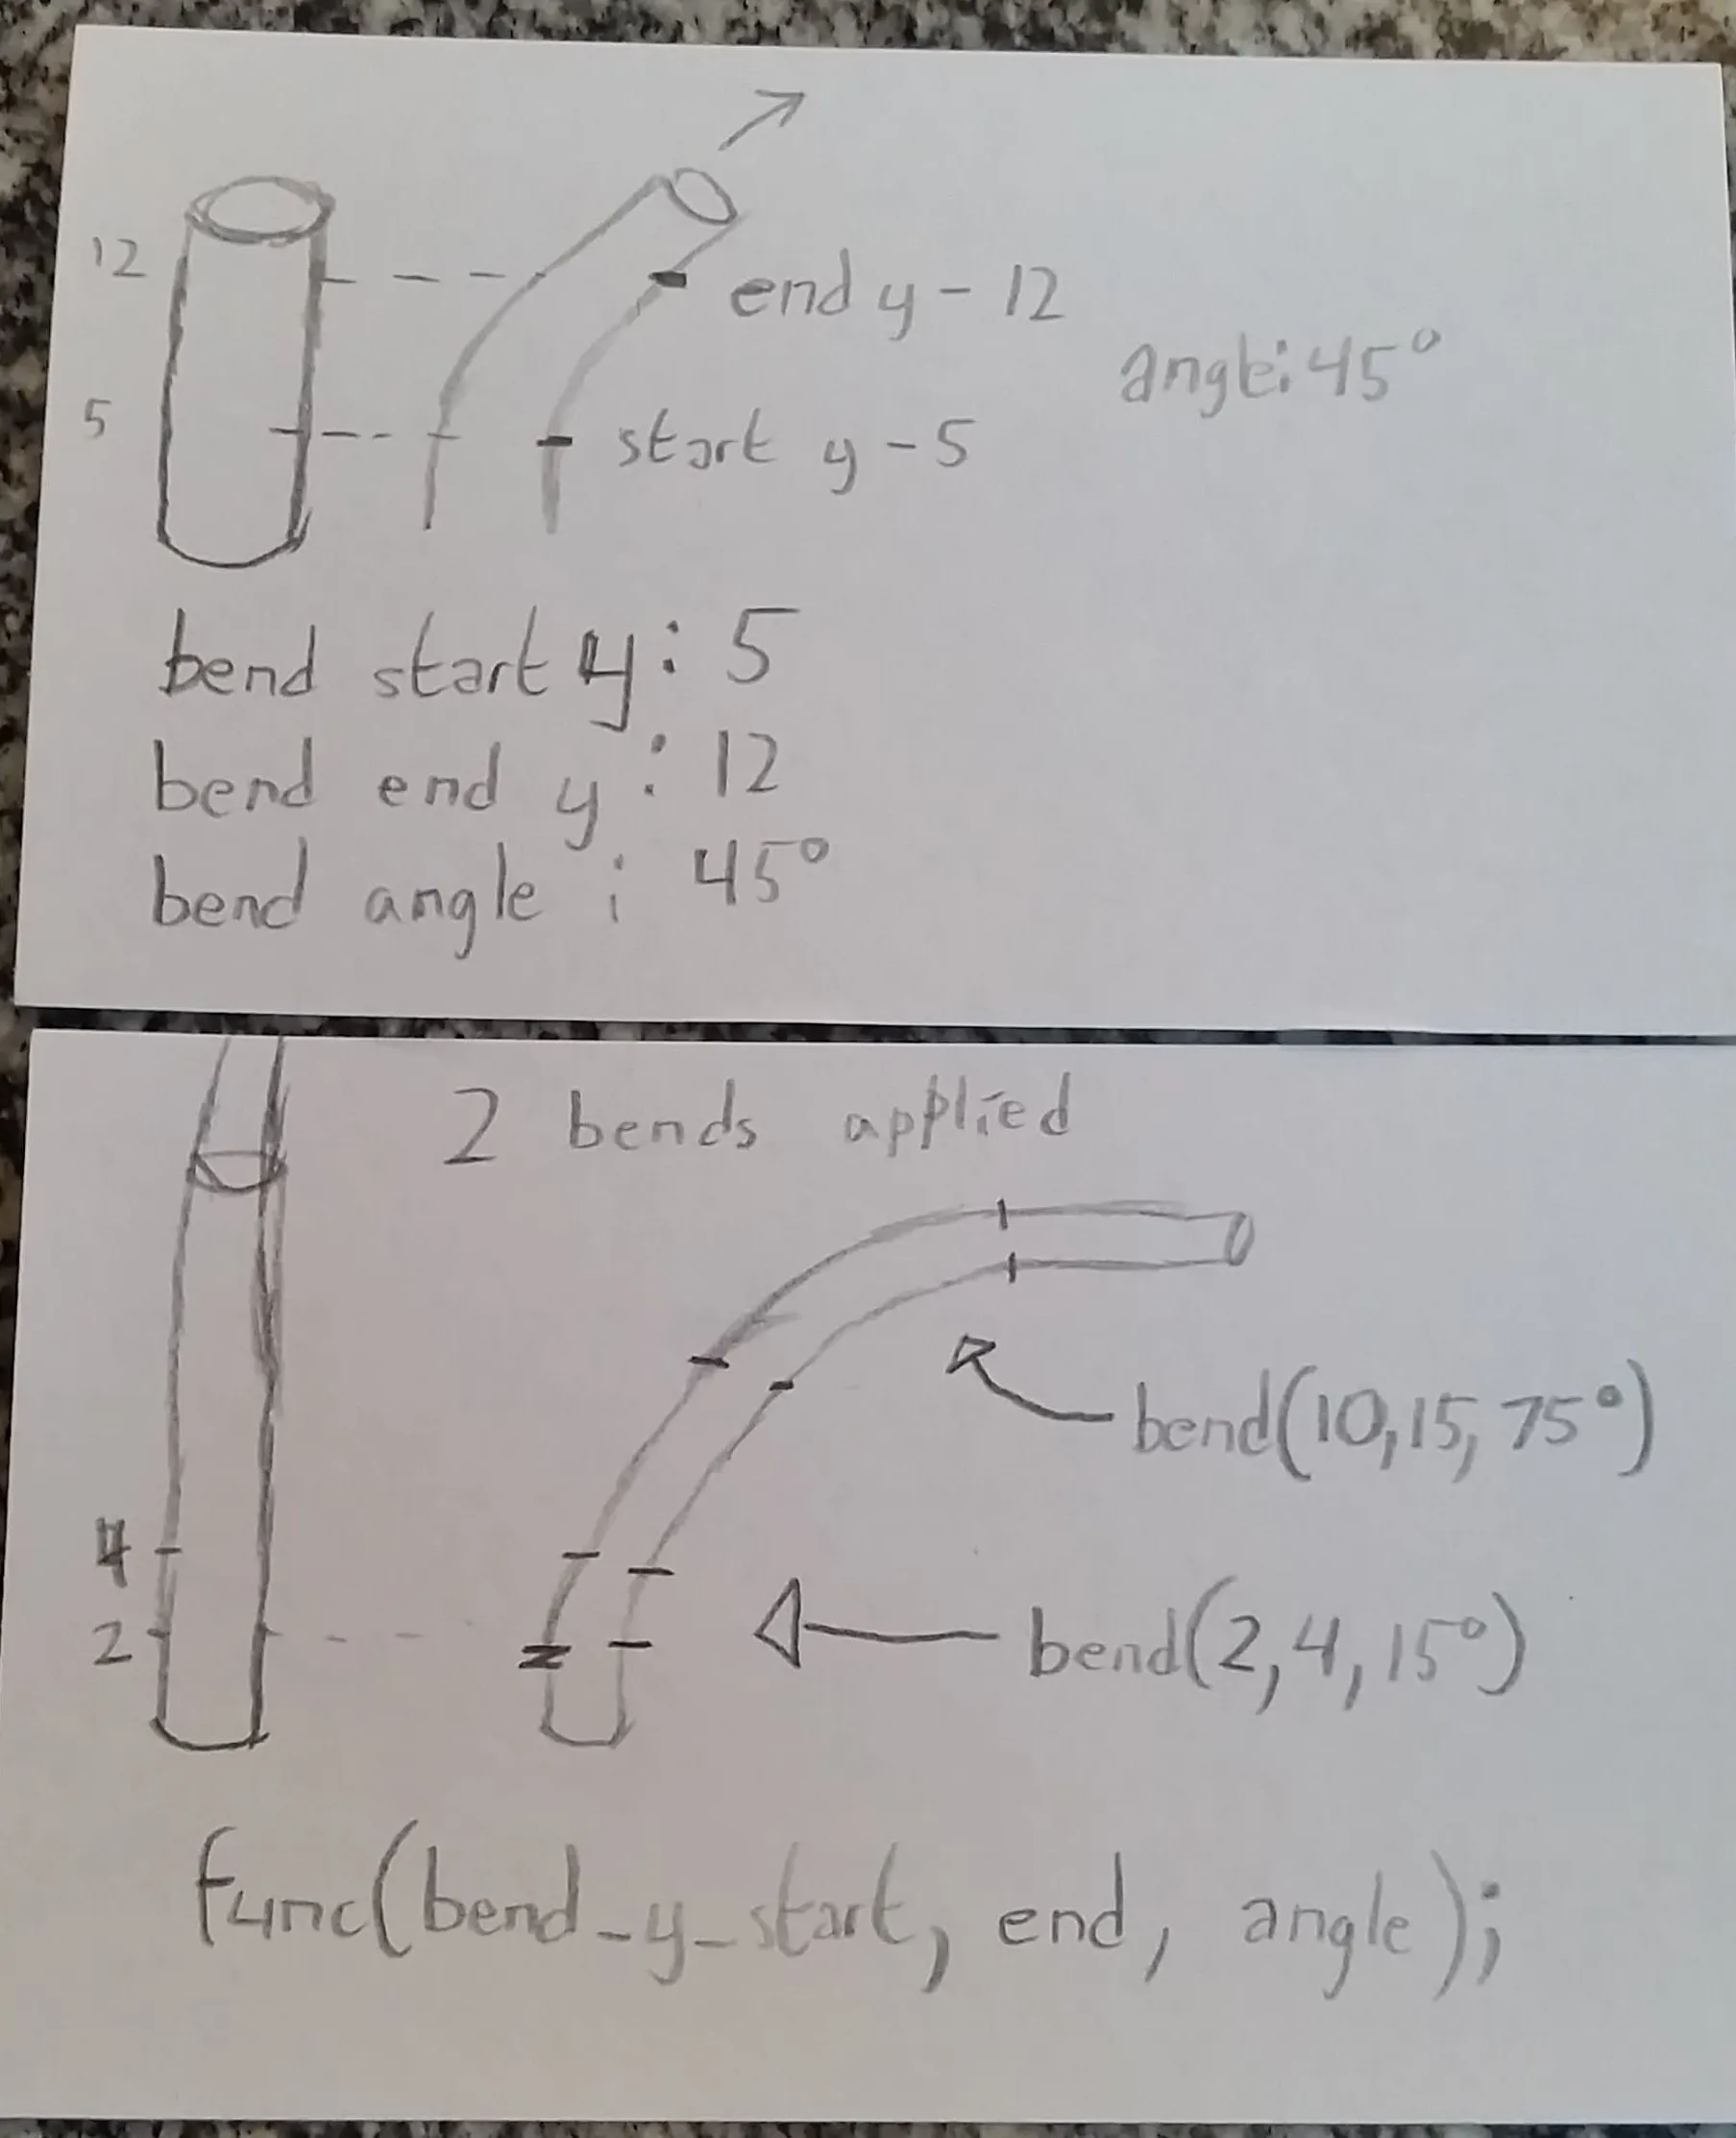 12
end y - 12
angle: 45°
5
start y - 5
bend start y: 5
bend end y: 12
bend angle: 45°
2 bends applied
bend(10,15,75°)
4
2
bend(2,4,15°)
func(bend_y_start, end, angle);